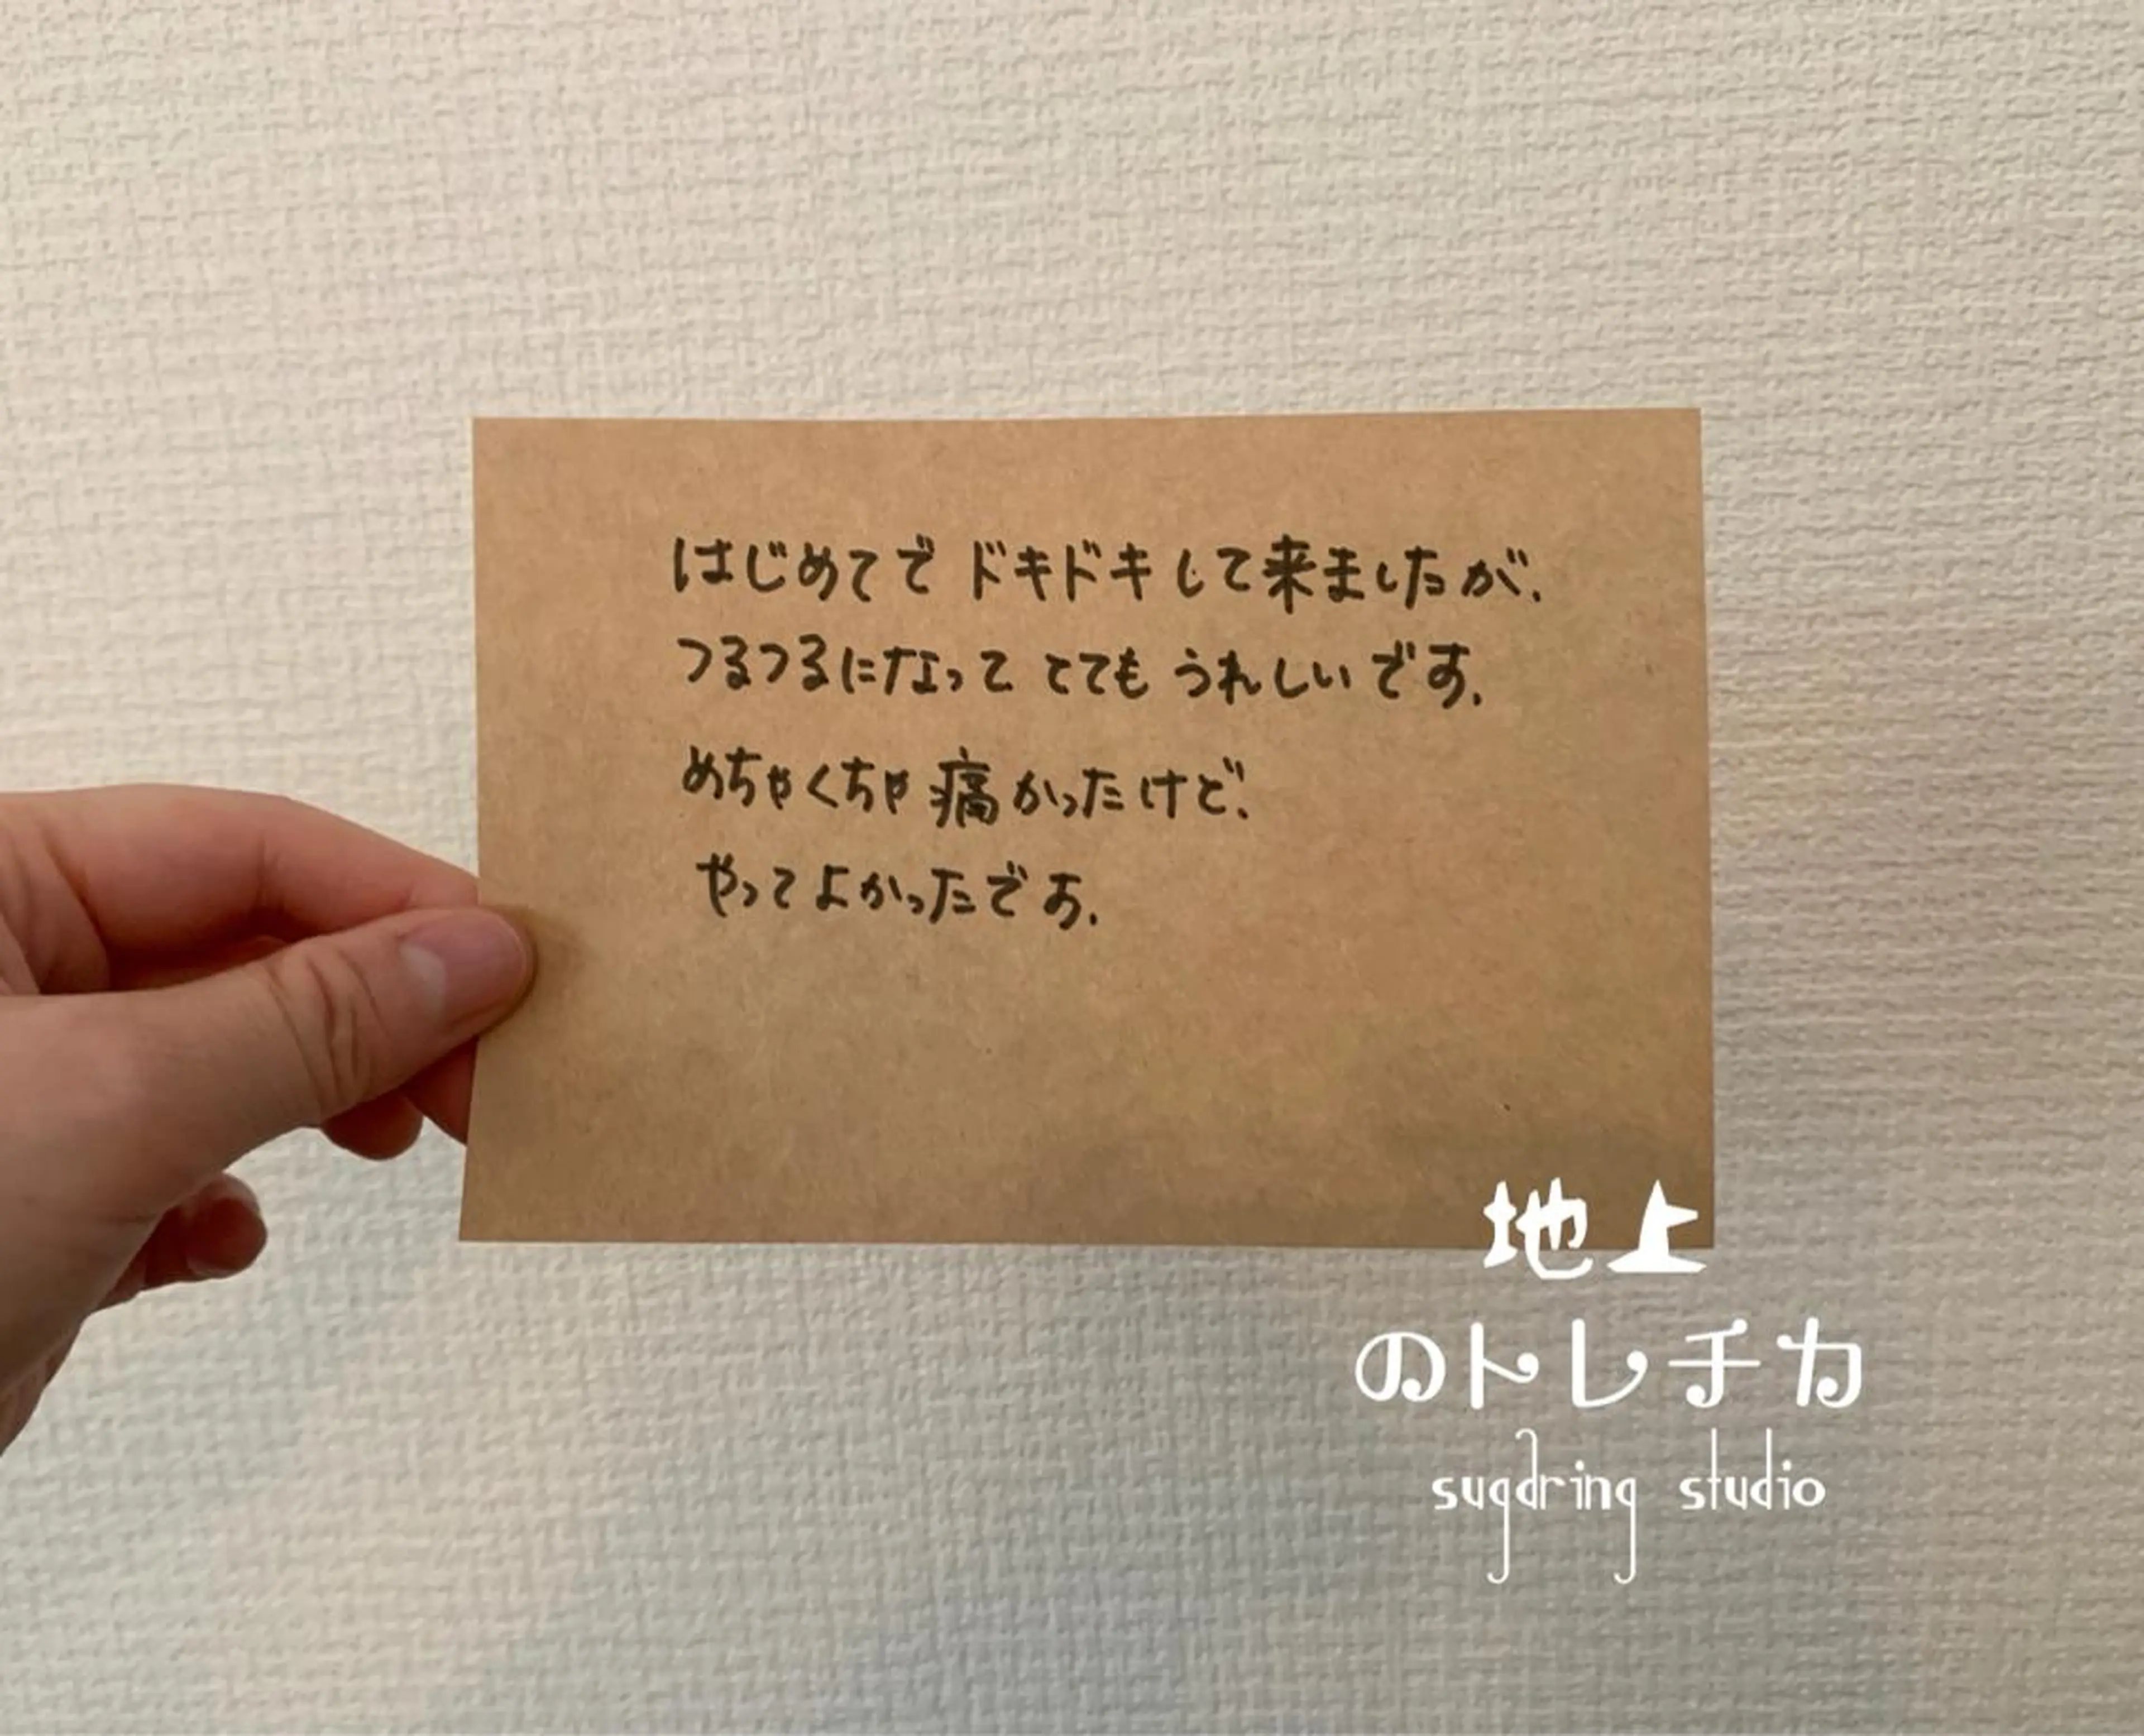 はじめてでドキドキして来ましたが、
つるつるになってとてもうれしいです。
めちゃくちゃ痛かったけど、
やってよかったです。
地上
のトレチカ
sugaring studio